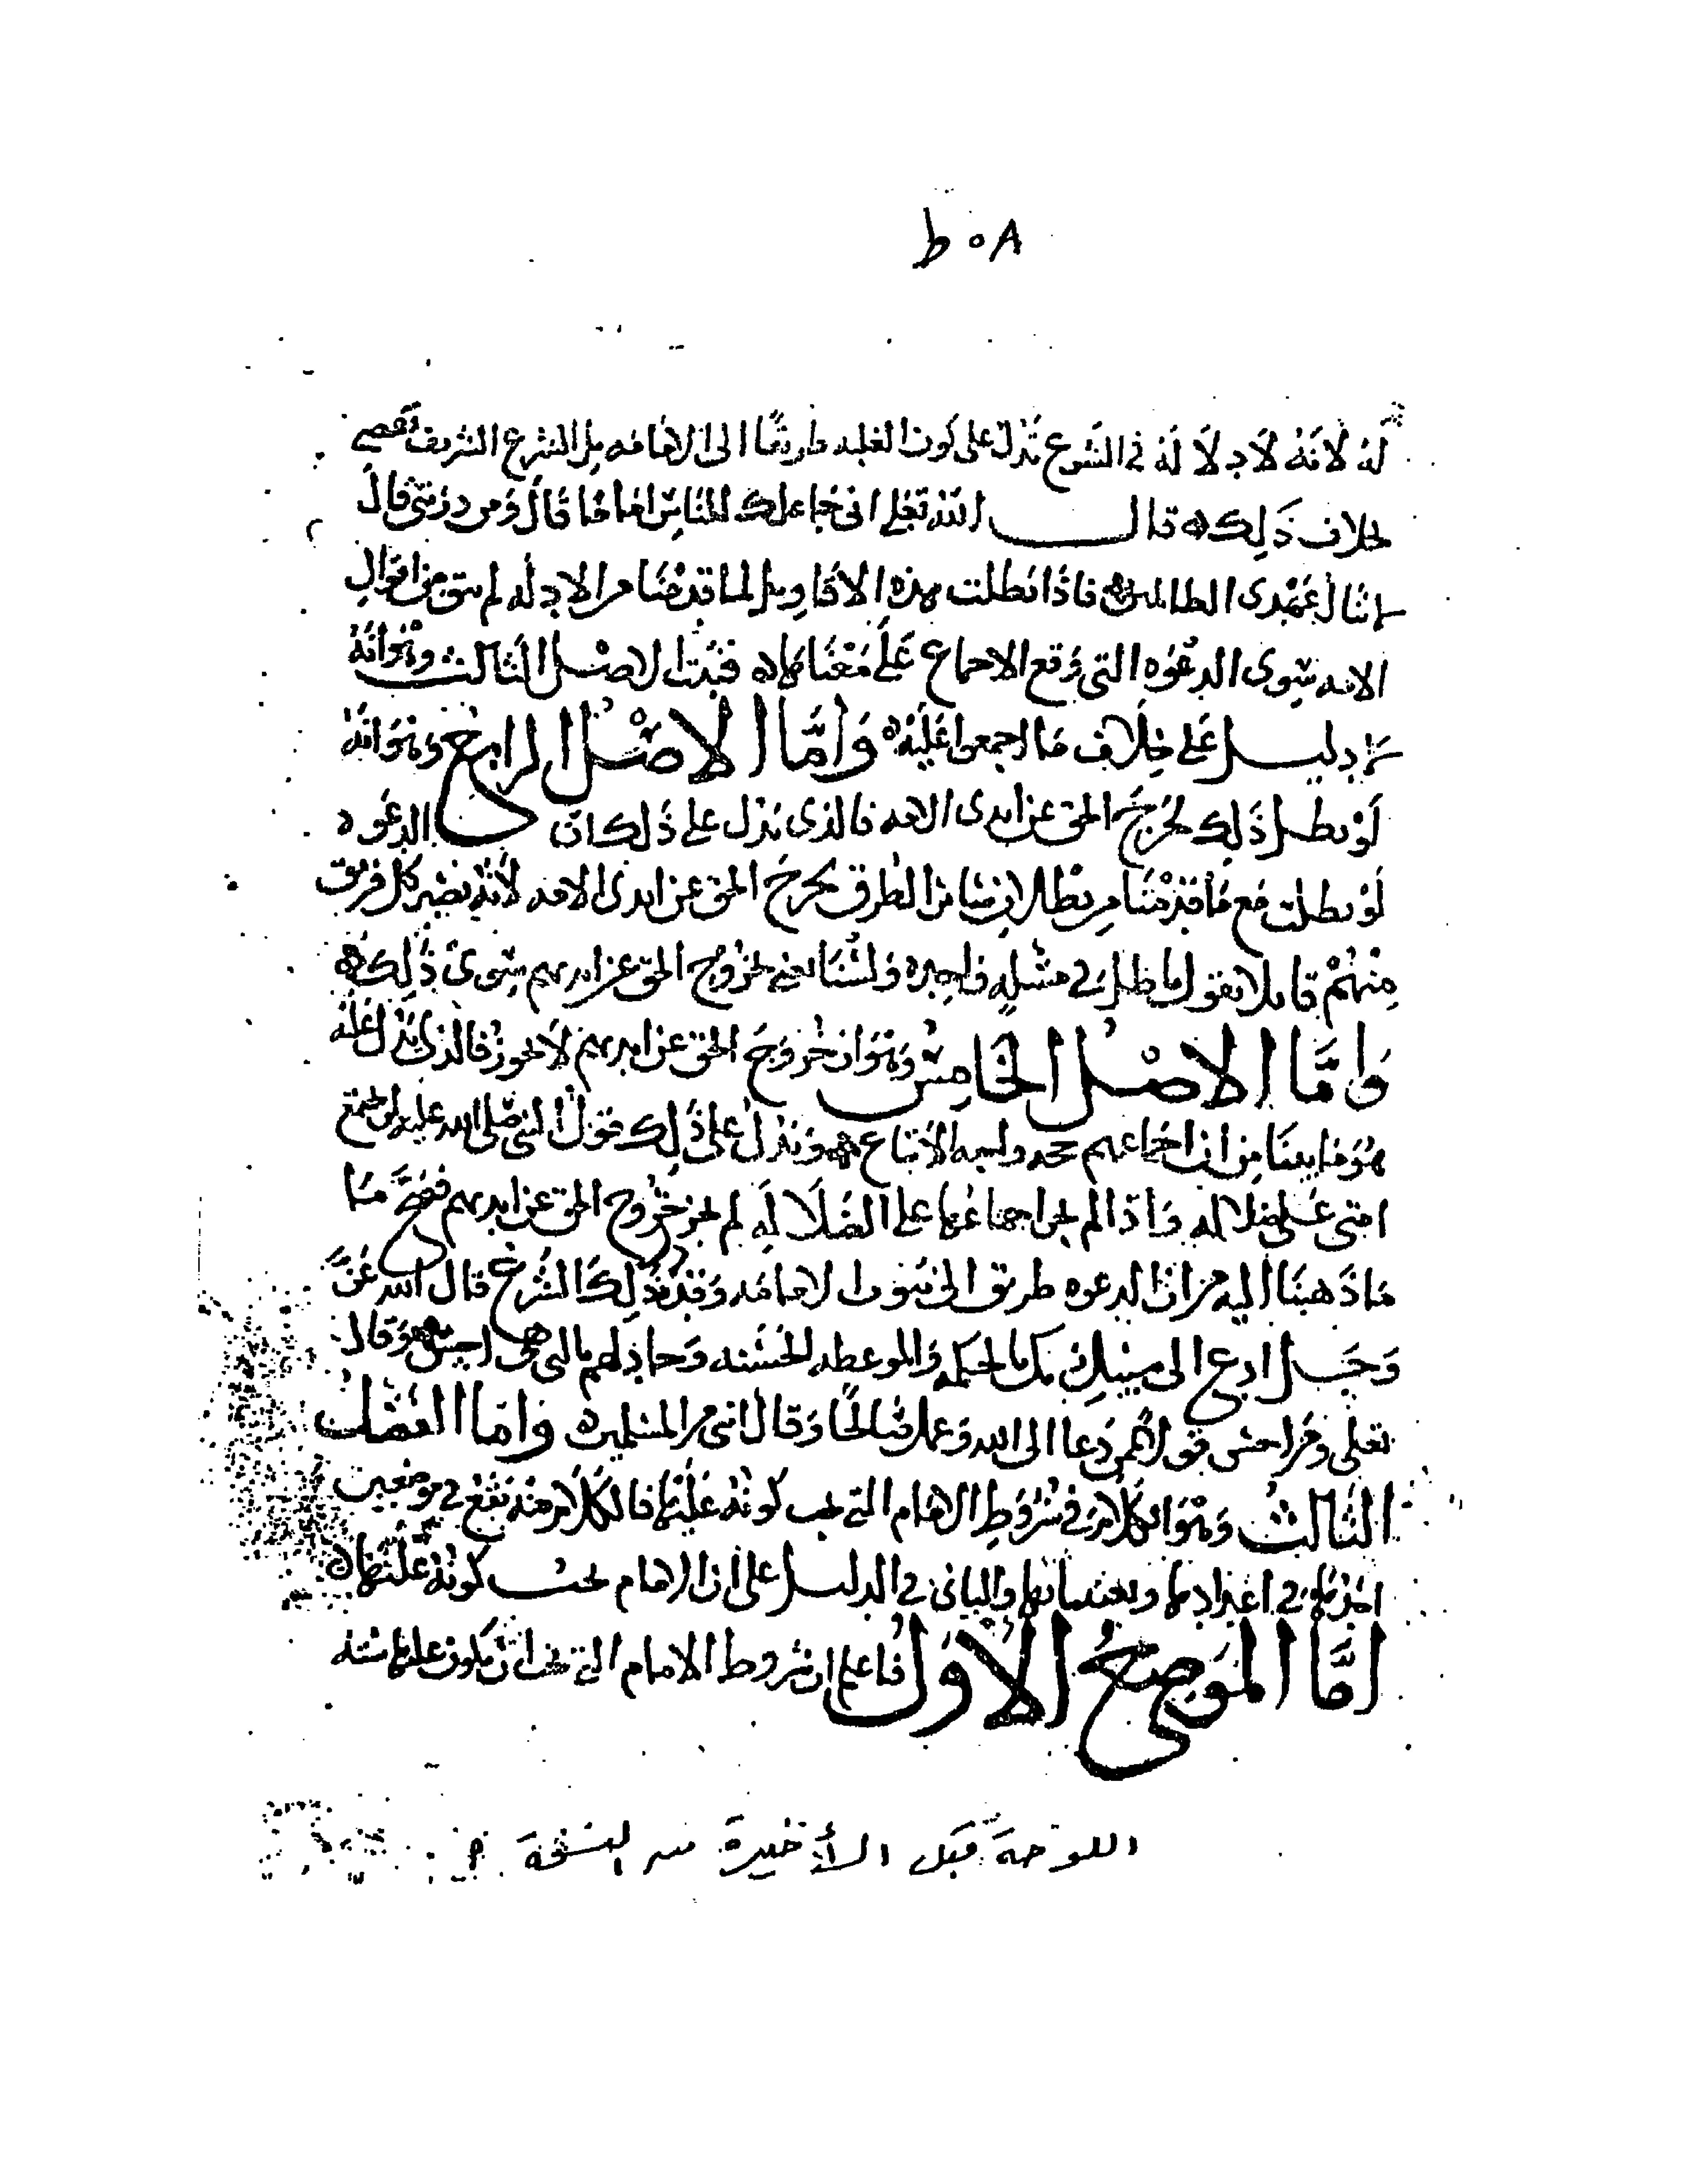 ٥٨ ط
له لانه لا دلالة في الشرع تدل على كون الغلبه طريقًا الى الامامه بل الشرع الشريف يقضي
بخلاف ذلك ه قال الله تعلى اني جاعلك للناس امامًا قال ومن ذريتي قال
لا ينال عهدي الظالمين فاذا بطلت هذه الاقاويل لما قدمنا من الادله لم يبق من اقوال
الامه سوى الدعوه التي وقع الاجماع على معناها ه فثبت الاصل الثالث وهو انه
لا دليل على خلاف ما اجمعوا عليه ه واما الاصل الرابع وهو انه
لو بطل ذلك لخرج الحق عن ايدي الامه فالذي يدل على ذلك ان الدعوه
لو بطلت مع ما قدمنا من بطلان سائر الطرق لخرج الحق عن ايدي الامه لانه يصير كل فريق
منهم قائلا بقول باطل في مسئلةٍ واحدة ولسنا نعني بخروج الحق عن ايديهم سوى ذلك ه
واما الاصل الخامس وهو ان خروج الحق عن ايديهم لا يجوز فالذي يدل عليه
هو ما بينا من ان اجماعهم حجه واجبه الاتباع ه ويدل على ذلك قول النبي صلى الله عليه لن تجتمع
امتي على ضلاله واذا لم يجز اجماعها على الضلالة لم يجز خروج الحق عن ايديهم فصح ما
ما ذهبنا اليه من ان الدعوه طريق الى ثبوت الامامه وقد ذلك الشرع قال الله عز
وجل ادع الى سبيل ربك بالحكمه والموعظه الحسنه وجادلهم بالتي هي احسن ه وقال
تعلى ومن احسن قولا ممن دعا الى الله وعمل صالحًا وقال انني من المسلمين ه واما الفصل
الثالث وهو الكلام في شروط الامام التي يجب كونه عليها فالكلام منه يقع في موضعين
احدهما في اعدادها وتعيينها والثاني في الدليل على ان الامام يجب كونه عليها ه
اما الموضع الاول فاعلم ان شروط الامام التي يجب ان يكون عليها سته
اللوحة قبل الأخيرة من النسخة